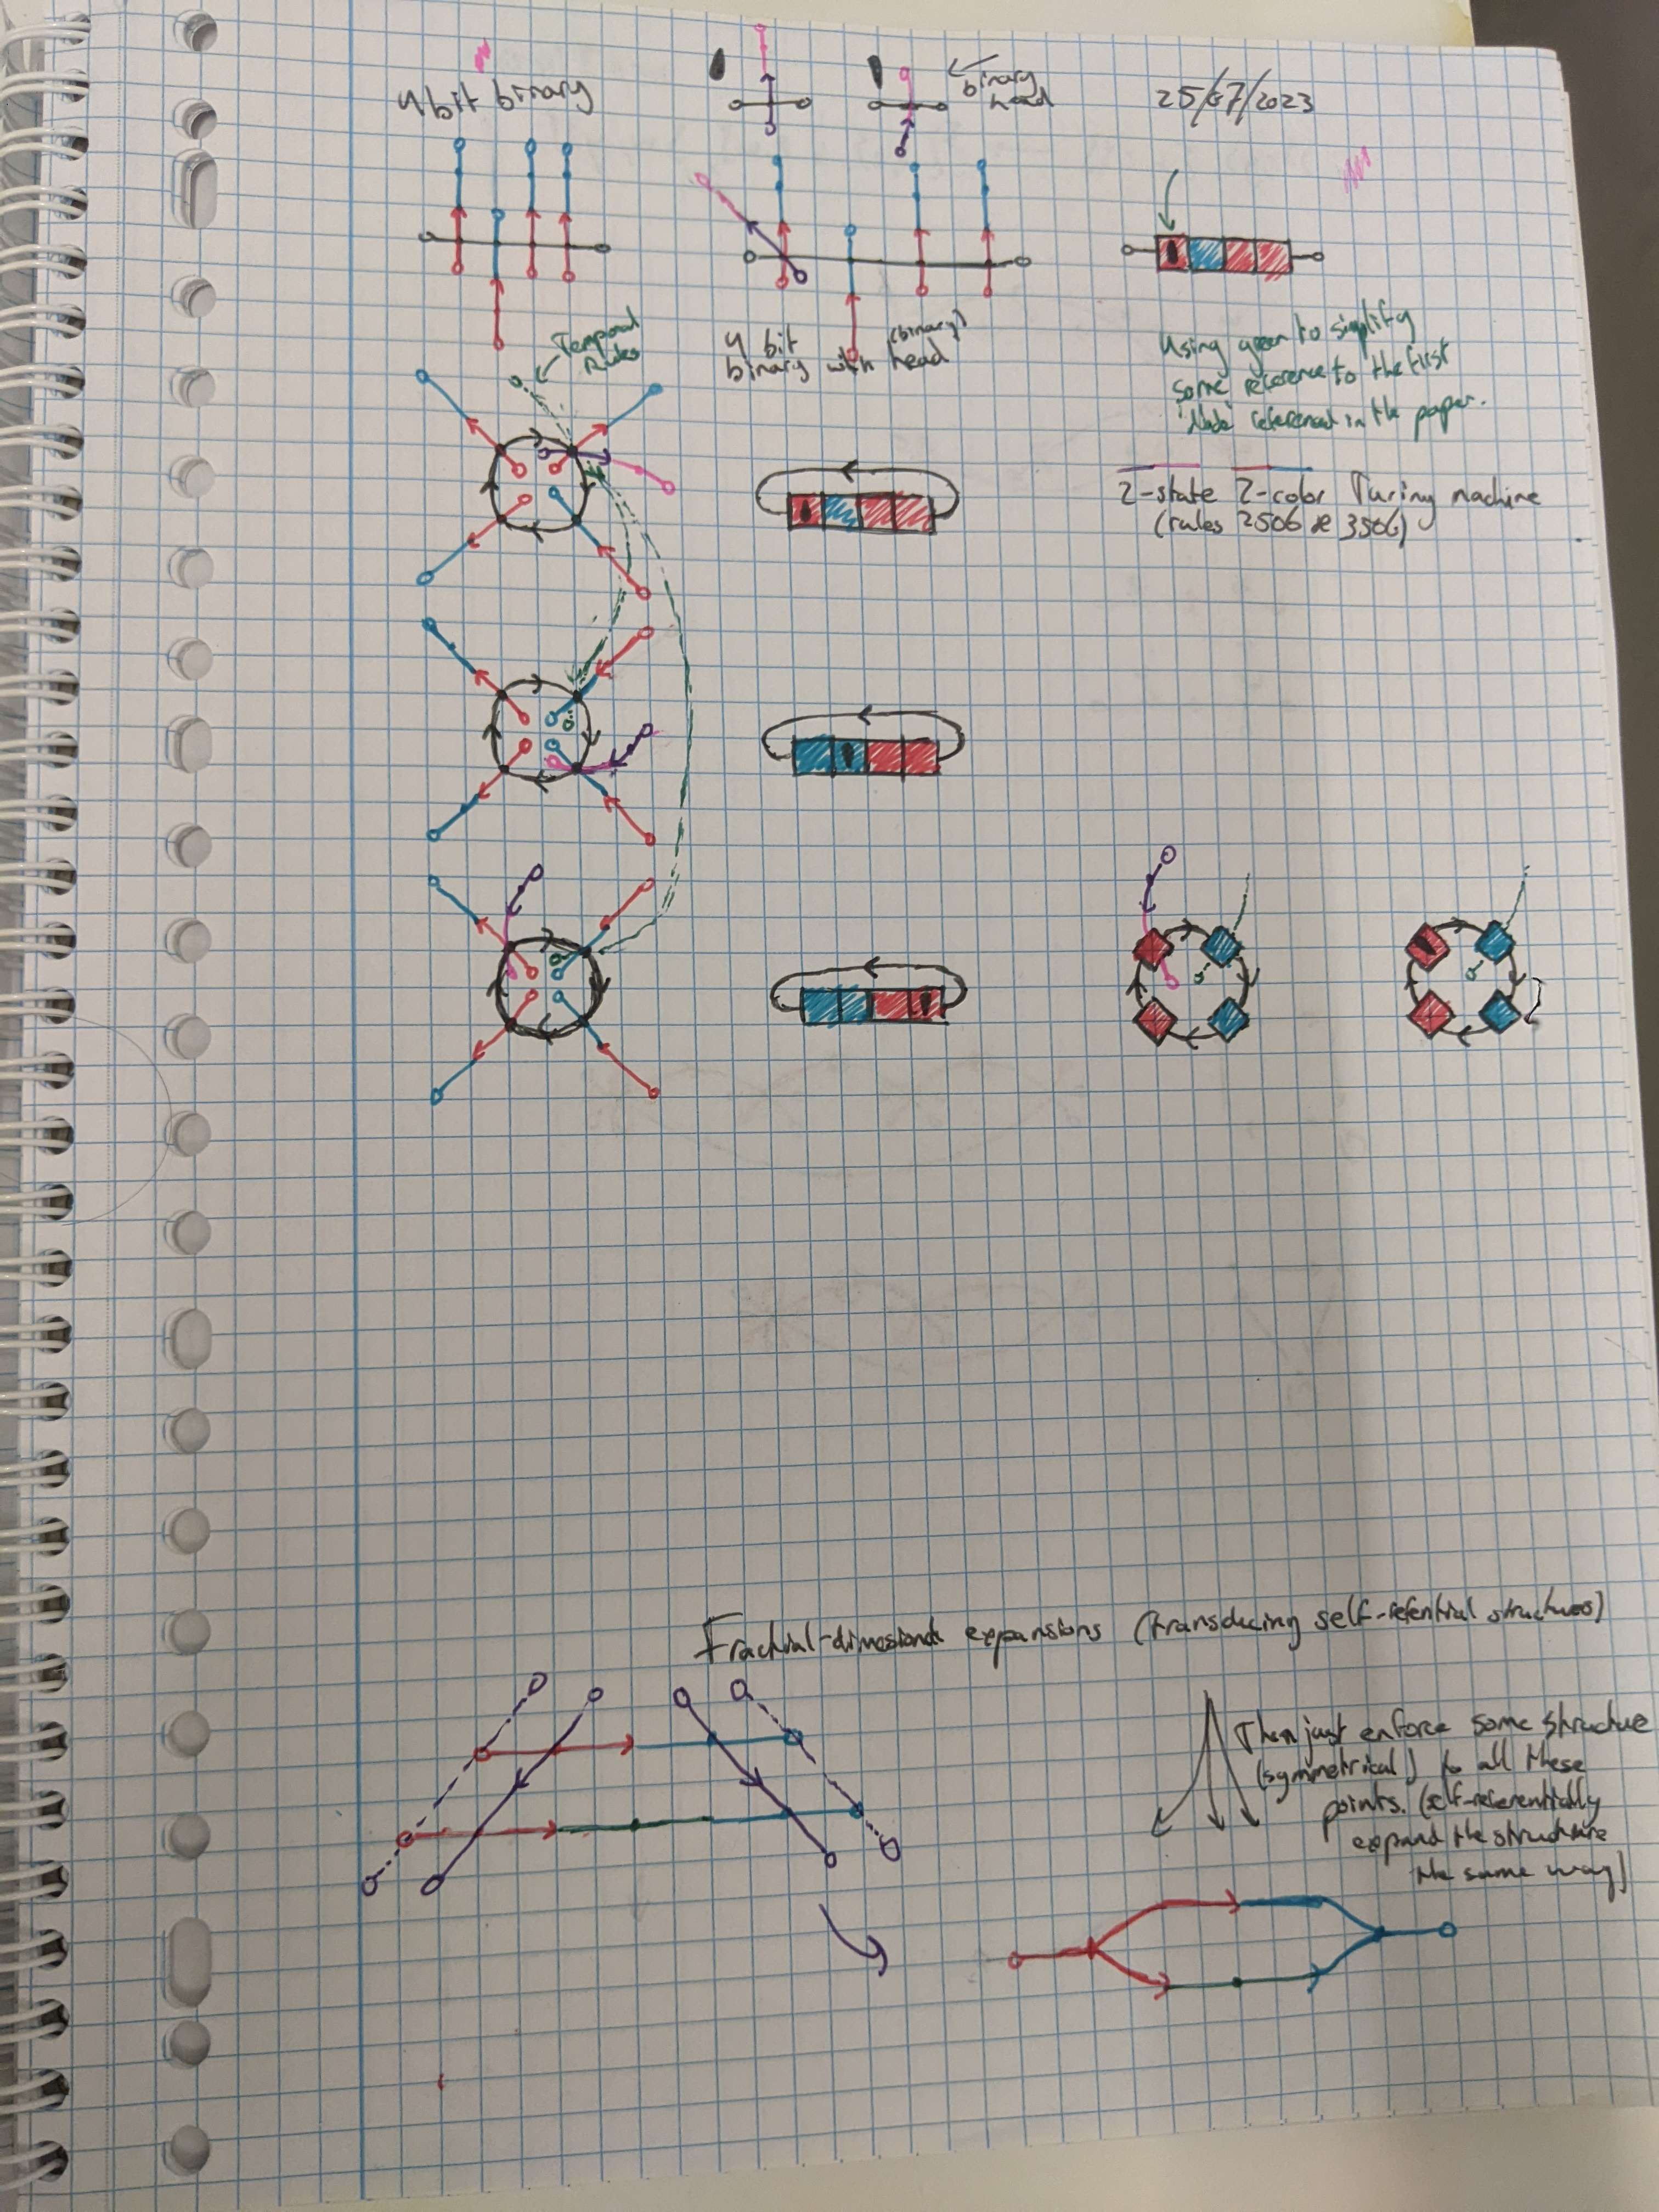 4 bit binary
binary
head
25/07/2023
Temporal
Rules
4 bit (binary)
binary with head
Using green to simplify
some reference to the first
'Node' referenced in the paper.
2-state 2-color Turing machine
(rules 2506 & 3506)
Fractial-dimesional expansions (transducing self-refential structures)
Then just enforce some structure
(symmetrical) to all these
points. (self-referentially
expand the structure
the same way)